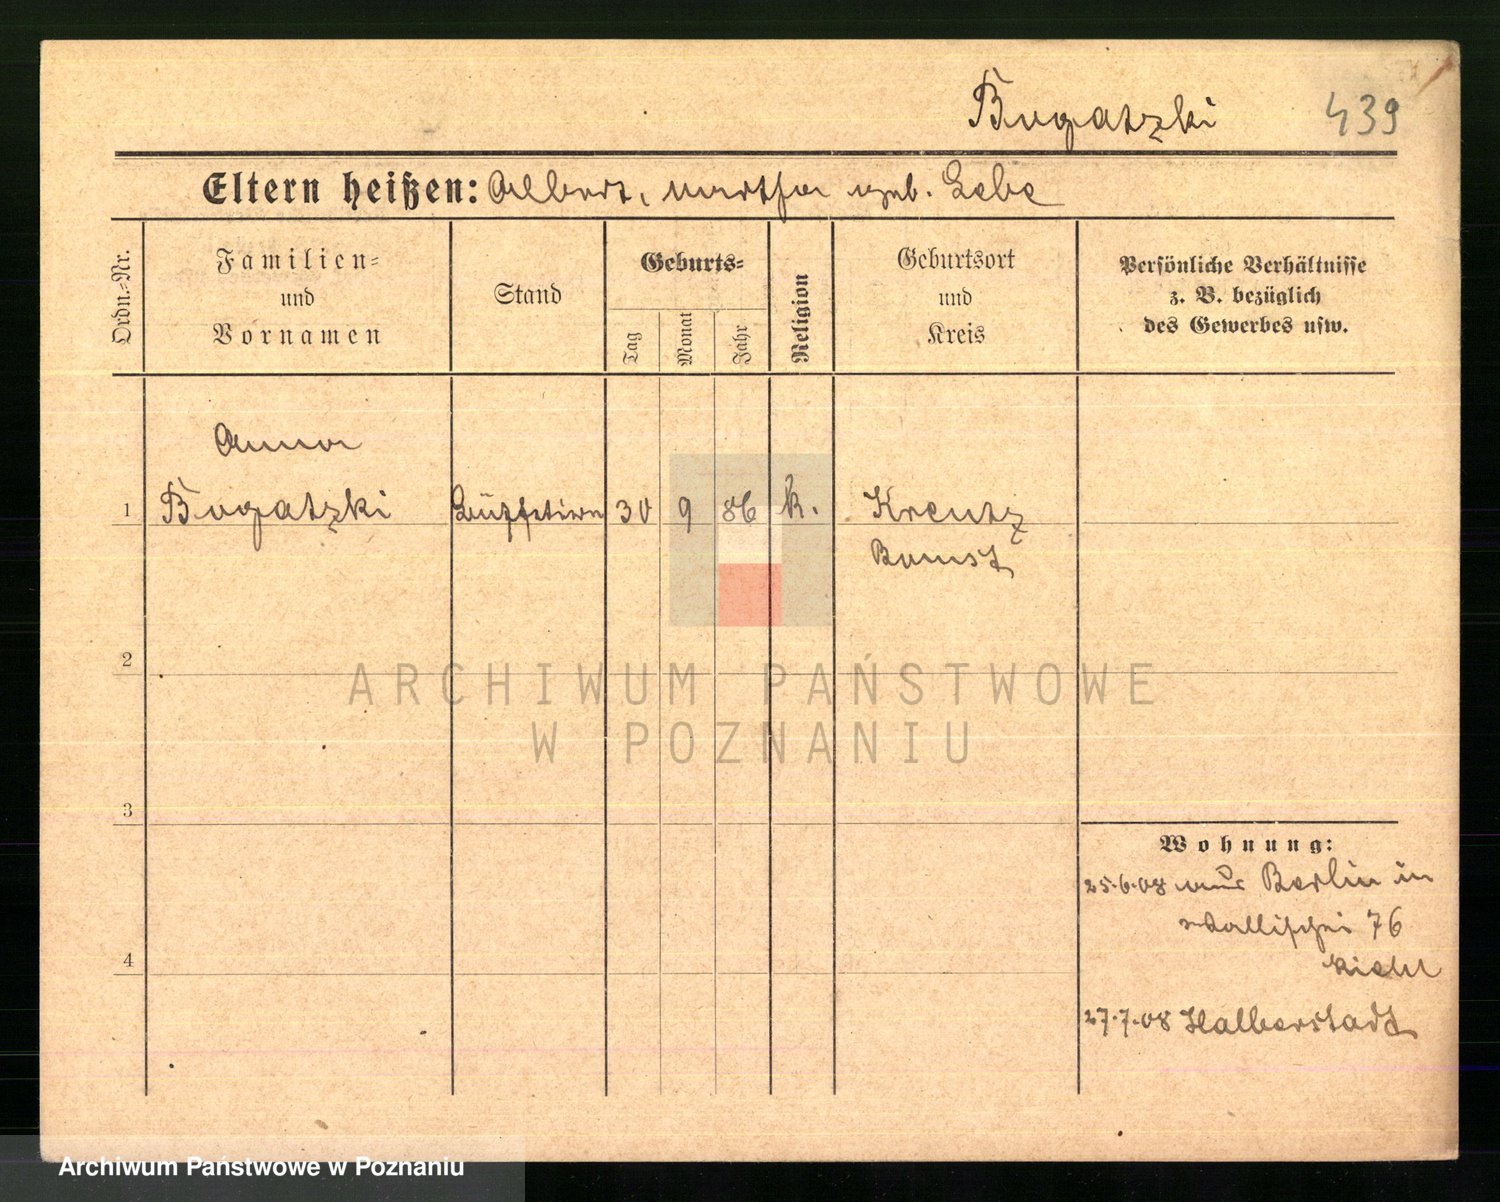 Bogatzki 439
Eltern heißen: Albert, Martha geb. Lebe
Ordn.-Nr.
Familien-
und
Vornamen
Stand
Geburts-
Tag
Monat
Jahr
Religion
Geburtsort
und
Kreis
Persönliche Verhältnisse
z. B. bezüglich
des Gewerbes usw.
Anna
1 Bogatzki Büffetiere 30 9 86 k. Kreutz
Bomst
2
ARCHIWUM PAŃSTWOWE
W POZNANIU
3
Wohnung:
25.6.08 aus Berlin in
Wallischei 76
4
27.7.08 Halberstadt
Archiwum Państwowe w Poznaniu